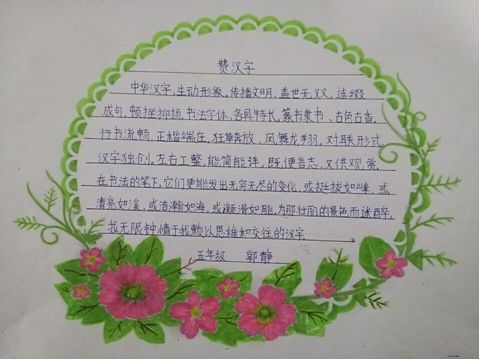 赞汉字
中华汉字,生动形象,传播文明,盖世无双,连缀
成句,顿挫抑扬,书法字体,各具特长,篆书隶书,古色古香,
行书流畅,正楷端庄,狂草奔放,凤舞龙翔,对联形式,
汉字独创,左右工整,能简能详,既便言志,又供观赏,
在书法的笔下,它们更能发出无穷无尽的变化,或挺拔如峰,或
清亮如溪,或浩瀚如海,或凝滑如脂,为那壮丽的景色而迷醉,
我无限钟情于我赖以思维和交往的汉字。
五年级 郭静